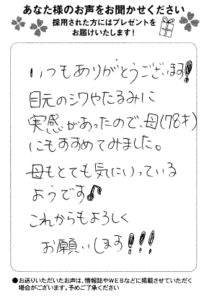 あなた様のお声をお聞かせください
採用された方にはプレゼントを
お届けいたします!
いつもありがとうございます!
目元のシワやたるみに
実感があったので、母(78才)
にもすすめてみました。
母もとても気にいっている
ようです♪
これからもよろしく
お願いします!!!
●お送りいただいたお声は、情報誌やWEBなどに掲載させていただく
場合がございます。予めご了承ください